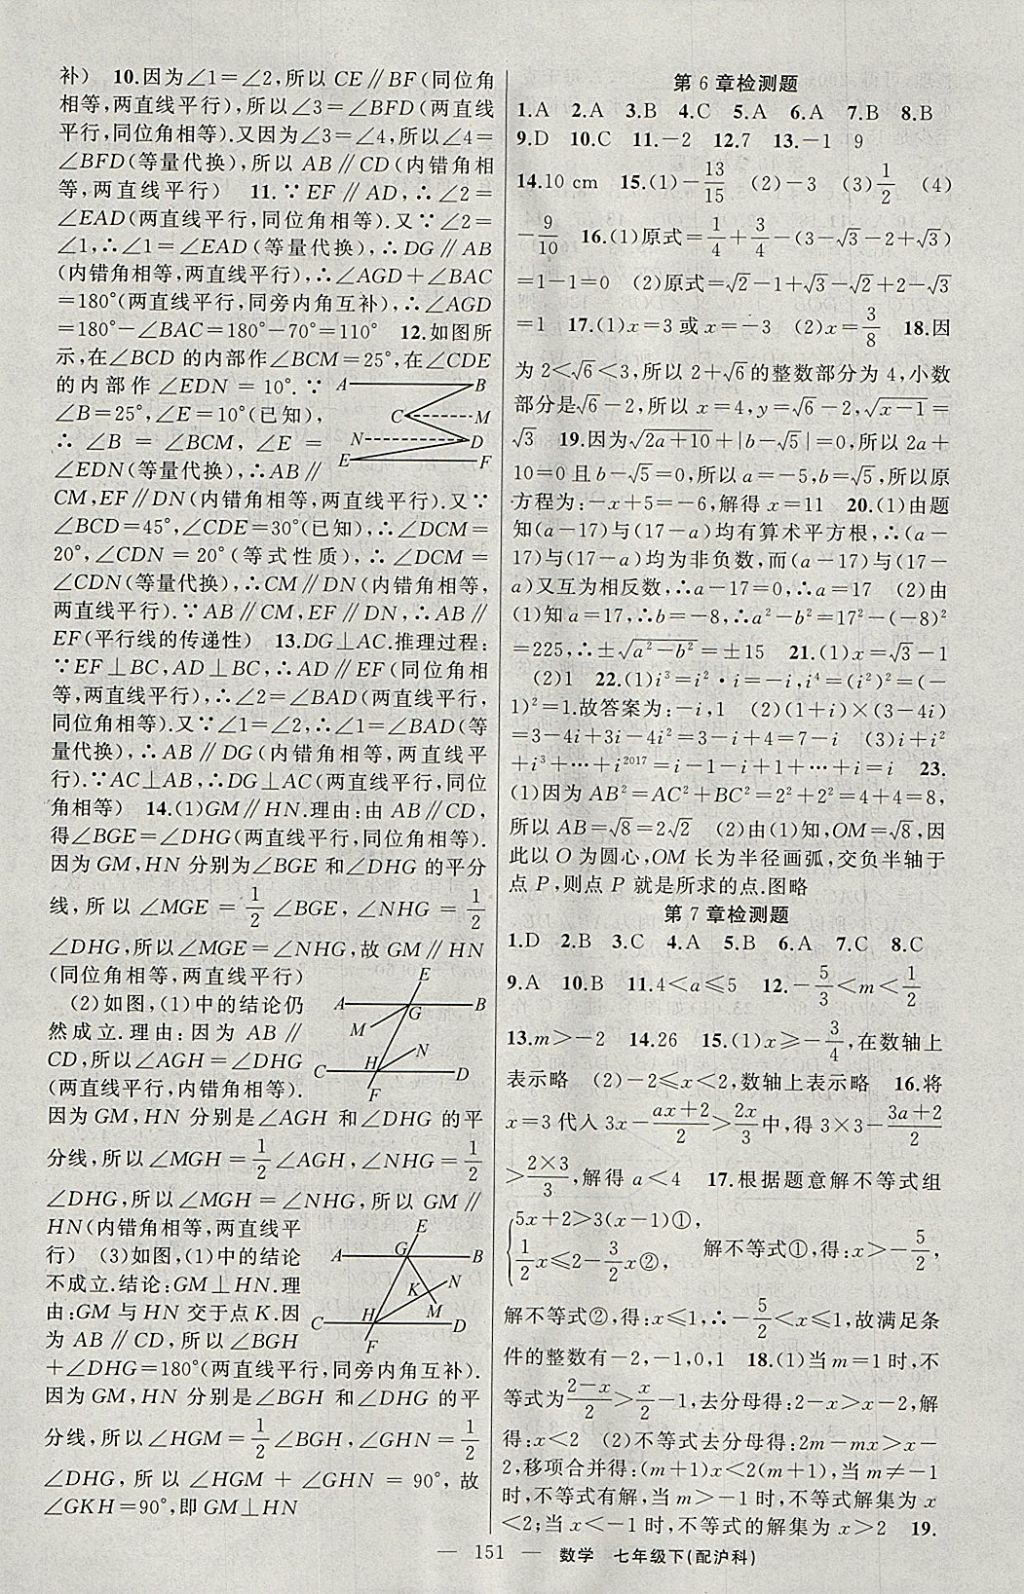 补) 10.因为∠1=∠2,所以 CE∥BF(同位角
相等,两直线平行),所以∠3=∠BFD(两直线
平行,同位角相等).又因为∠3=∠4,所以∠4=
∠BFD(等量代换),所以 AB∥CD(内错角相
等,两直线平行) 11.∵EF∥AD,∴∠2=
∠EAD(两直线平行,同位角相等).又∵∠2=
∠1,∴∠1=∠EAD(等量代换),∴DG∥AB
(内错角相等,两直线平行),∴∠AGD+∠BAC
=180°(两直线平行,同旁内角互补),∴∠AGD
=180°-∠BAC=180°-70°=110° 12.如图所
示,在∠BCD 的内部作∠BCM=25°,在∠CDE
的内部作∠EDN=10°.∵
∠B=25°,∠E=10°(已知),
∴∠B=∠BCM,∠E=
∠EDN(等量代换),∴AB∥
A B
C M
N D
E F
CM,EF∥DN(内错角相等,两直线平行).又∵
∠BCD=45°,∠CDE=30°(已知),∴∠DCM=
20°,∠CDN=20°(等式性质),∴∠DCM=
∠CDN(等量代换),∴CM∥DN(内错角相等,
两直线平行).∵AB∥CM,EF∥DN,∴AB∥
EF(平行线的传递性) 13.DG⊥AC.推理过程:
∵EF⊥BC,AD⊥BC,∴AD∥EF(同位角相
等,两直线平行),∴∠2=∠BAD(两直线平行,
同位角相等).又∵∠1=∠2,∴∠1=∠BAD(等
量代换),∴AB∥DG(内错角相等,两直线平
行).∵AC⊥AB,∴DG⊥AC(两直线平行,同位
角相等) 14.(1)GM∥HN.理由:由 AB∥CD,
得∠BGE=∠DHG(两直线平行,同位角相等).
因为 GM,HN 分别为∠BGE 和∠DHG 的平分
线,所以∠MGE=1/2∠BGE,∠NHG=1/2
∠DHG,所以∠MGE=∠NHG,故 GM∥HN
(同位角相等,两直线平行)
(2)如图,(1)中的结论仍
然成立.理由:因为 AB∥
CD,所以∠AGH=∠DHG
(两直线平行,内错角相等).
E
A G B
M
H N
C D
F
因为 GM,HN 分别是∠AGH 和∠DHG 的平
分线,所以∠MGH=1/2∠AGH,∠NHG=1/2
∠DHG,所以∠MGH=∠NHG,所以 GM∥
HN(内错角相等,两直线平
行) (3)如图,(1)中的结论
不成立.结论:GM⊥HN.理
由:GM 与 HN 交于点 K.因
为 AB∥CD,所以∠BGH
E
A G B
K N
M
H
C D
F
+∠DHG=180°(两直线平行,同旁内角互补).
因为 GM,HN 分别是∠BGH 和∠DHG 的平
分线,所以∠HGM=1/2∠BGH,∠GHN=1/2
∠DHG,所以∠HGM+∠GHN=90°,故
∠GKH=90°,即 GM⊥HN
第 6 章检测题
1.A 2.A 3.B 4.C 5.A 6.A 7.B 8.B
9.D 10.C 11.-2 12.7 13.-1 9
14.10 cm 15.(1)-13/15 (2)-3 (3)1/2 (4)
-9/10 16.(1)原式=1/4+3/4-(3-√3-2+√3)
=1-1=0 (2)原式=√2-1+√3-√2+2-√3
=1 17.(1)x=3 或 x=-3 (2)x=3/8 18.因
为 2<√6<3,所以 2+√6的整数部分为 4,小数
部分是√6-2,所以 x=4,y=√6-2,√(x-1)=
√3 19.因为√(2a+10)+|b-√5|=0,所以 2a+
10=0 且 b-√5=0,所以 a=-5,b=√5,所以原
方程为:-x+5=-6,解得 x=11 20.(1)由题
知(a-17)与(17-a)均有算术平方根,∴(a-
17)与(17-a)均为非负数,而(a-17)与(17-
a)又互为相反数,∴a-17=0,∴a=17 (2)由
(1)知 a=17,∴b=-8,∴a²-b²=17²-(-8)²
=225,∴±√(a²-b²)=±15 21.(1)x=√3-1
(2)1 22.(1)i³=i²·i=-i,i⁴=(i²)²=(-
1)²=1.故答案为:-i,1 (2)(1+i)×(3-4i)
=3-4i+3i-4i²=3-i+4=7-i (3)i+i²
+i³+…+i²⁰¹⁷=i-1-i+1+…+i=i 23.
(1)因为 AB²=AC²+BC²=2²+2²=4+4=8,
所以 AB=√8=2√2 (2)由(1)知,OM=√8,因
此以 O 为圆心,OM 长为半径画弧,交负半轴于
点 P,则点 P 就是所求的点.图略
第 7 章检测题
1.D 2.B 3.C 4.A 5.B 6.A 7.C 8.C
9.A 10.B 11.4<a≤5 12.-5/3<m<1/2
13.m>-2 14.26 15.(1)x≥-3/4,在数轴上
表示略 (2)-2≤x<2,数轴上表示略 16.将
x=3 代入 3x-(ax+2)/2>2x/3中,得 3×3-(3a+2)/2
>(2×3)/3,解得 a<4 17.根据题意解不等式组
{5x+2>3(x-1)①,
1/2x≤2-3/2x②, 解不等式①,得:x>-5/2,
解不等式②,得:x≤1,∴-5/2<x≤1,故满足条
件的整数有-2,-1,0,1 18.(1)当 m=1 时,不
等式为(2-x)/2>x/2-1,去分母得:2-x>x-2,解
得:x<2 (2)不等式去分母得:2m-mx>x-
2,移项合并得:(m+1)x<2(m+1),当 m≠-1
时,不等式有解,当 m>-1 时,不等式解集为 x
<2;当 m<-1 时,不等式的解集为 x>2 19.
— 151 — 数学 七年级下(配沪科)